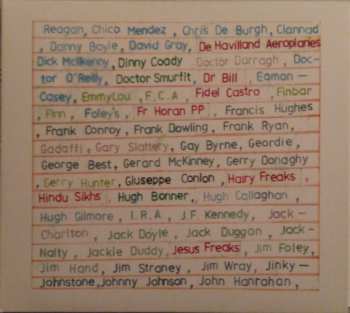 Reagan, Chico Mendez, Chris De Burgh, Clannad
, Danny Boyle, David Gray, De Havilland Aeroplanes
Dick McIlkenny, Dinny Coady Doctor Darragh, Doc-
tor O'Reilly, Doctor Smurfit, Dr Bill, Eamon -
Casey, EmmyLou, F.C.A, Fidel Castro, Finbar
, Finn, Foley's, Fr Horan PP, Francis Hughes
, Frank Conroy, Frank Dowling, Frank Ryan,
Gadaffi, Gary Slattery, Gay Byrne, Geordie,
George Best, Gerard McKinney, Gerry Donaghy
, Gerry Hunter, Giuseppe Conlon, Hairy Freaks,
Hindu Sikhs, Hugh Bonner, Hugh Callaghan,
Hugh Gilmore, I.R.A, J.F. Kennedy, Jack -
Charlton, Jack Doyle, Jack Duggan, Jack -
Nalty, Jackie Duddy, Jesus Freaks, Jim Foley,
Jim Hand, Jim Straney, Jim Wray, Jinky -
Johnstone, Johnny Johnson, John Hanrahan,